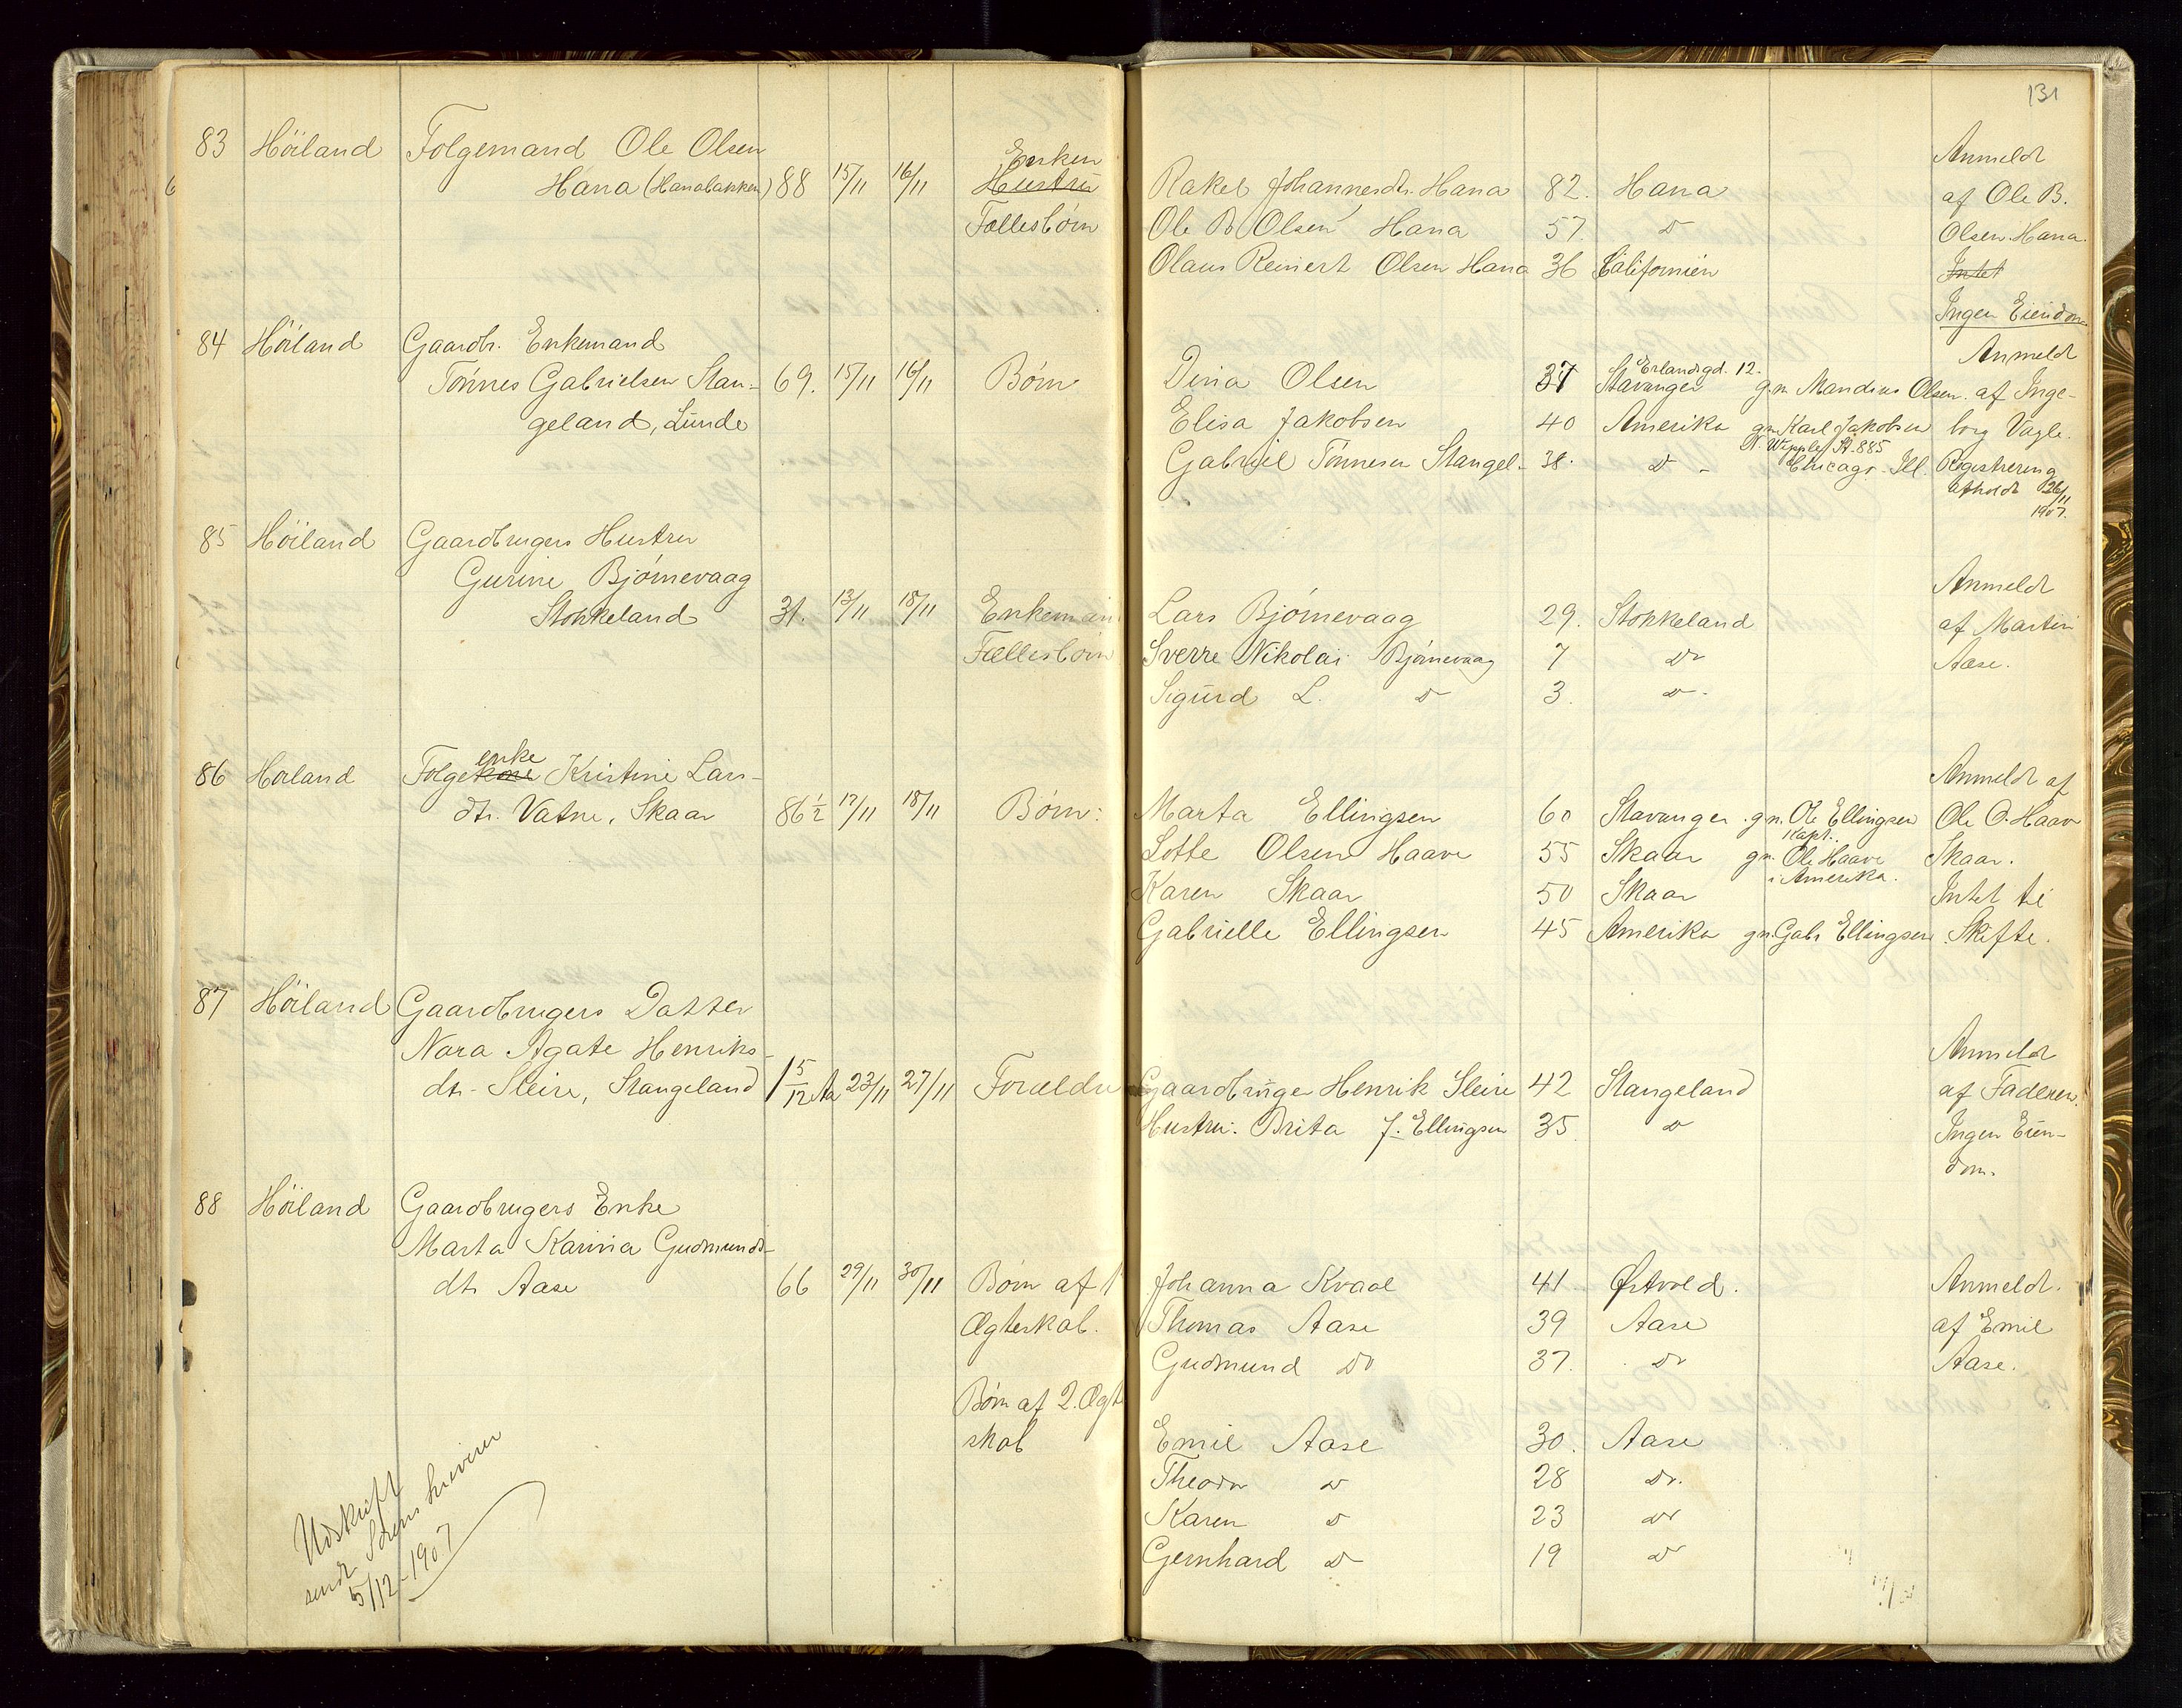 131
83 Höiland Folgemand Ole Olsen
Hana (Hanabakken) 88 15/11 16/11 Enken Hustru Rakel Johannesdtr. Hana 82. Hana Anmeldt af Ole B.
Fællesbörn Ole B Olsen Hana 57. Do Olsen Hana.
Olaus Reinert Olsen Hana 36 Californien Intet
Ingen Eiendom
84 Höiland Gaardb. Enkemand
Tönnes Gabrielsen Stan- 69. 15/11 16/11 Börn Dina Olsen 37 Stavanger Erlandsgd. 12. g.m. Mandius Olsen. Anmeldt af Inge-
geland, Lunde Elisa Jakobsen 40 Amerika gm. Karl Jakobsen borg Vagle.
Gabriel Tönnesen Stangel. 38. Do - N. Wipple St. 885 Chicago Ill. Registrering
afholdt 26/11
1907.
85 Höiland Gaardbrugers Hustru
Gurine Björnevaag Anmeldt
Stokkeland 31. 13/11 18/11 Enkemand Lars Björnevaag 29. Stokkeland af Martin
Fællesbörn Sverre Nikolai Björnevaag 7 Do Aase.
Sigurd L. Do 3. Do.
86 Höiland Folgekone enke Kristine Lars- Anmeldt af
dtr. Vatne, Skaar 86 1/2 17/11 18/11 Börn: Marta Ellingsen 60 Stavanger g.m. Ole Ellingsen Ole O. Haave
Kapt.
Lotte Olsen Haave 55 Skaar gm. Ole Haave Skaar.
i Amerika.
Karen Skaar 50 Skaar Intet til
Gabrielle Ellingsen 45 Amerika gm. Gabr Ellingsen Skifte.
87 Höiland Gaardbrugers Datter
Nora Agate Henriks- Anmeldt
dtr. Sleire, Stangeland 1 5/12 Aar 23/11 27/11 Forældre Gaardbruger Henrik Sleire 42 Stangeland af Faderen.
Hustru: Brita J. Ellingsen 35. Do Ingen Eien-
dom.
88 Höiland Gaardbrugers Enke
Marta Karina Gudmunds-
dtr Aase 66 29/11 30/11 Börn af 1 Johanna Kvaal 41 Østvold. Anmeldt.
Ægteskab. Thomas Aase 39 Aase af Emil
Gudmund Do 37. Do Aase.
Börn af 2. Ægte
skab Emil Aase 30. Aase
Theodor Do 28 Do.
Karen Do 23 Do
Gernhard Do 19 Do
Udskrift
sendt Sorenskriveren
5/12-1907